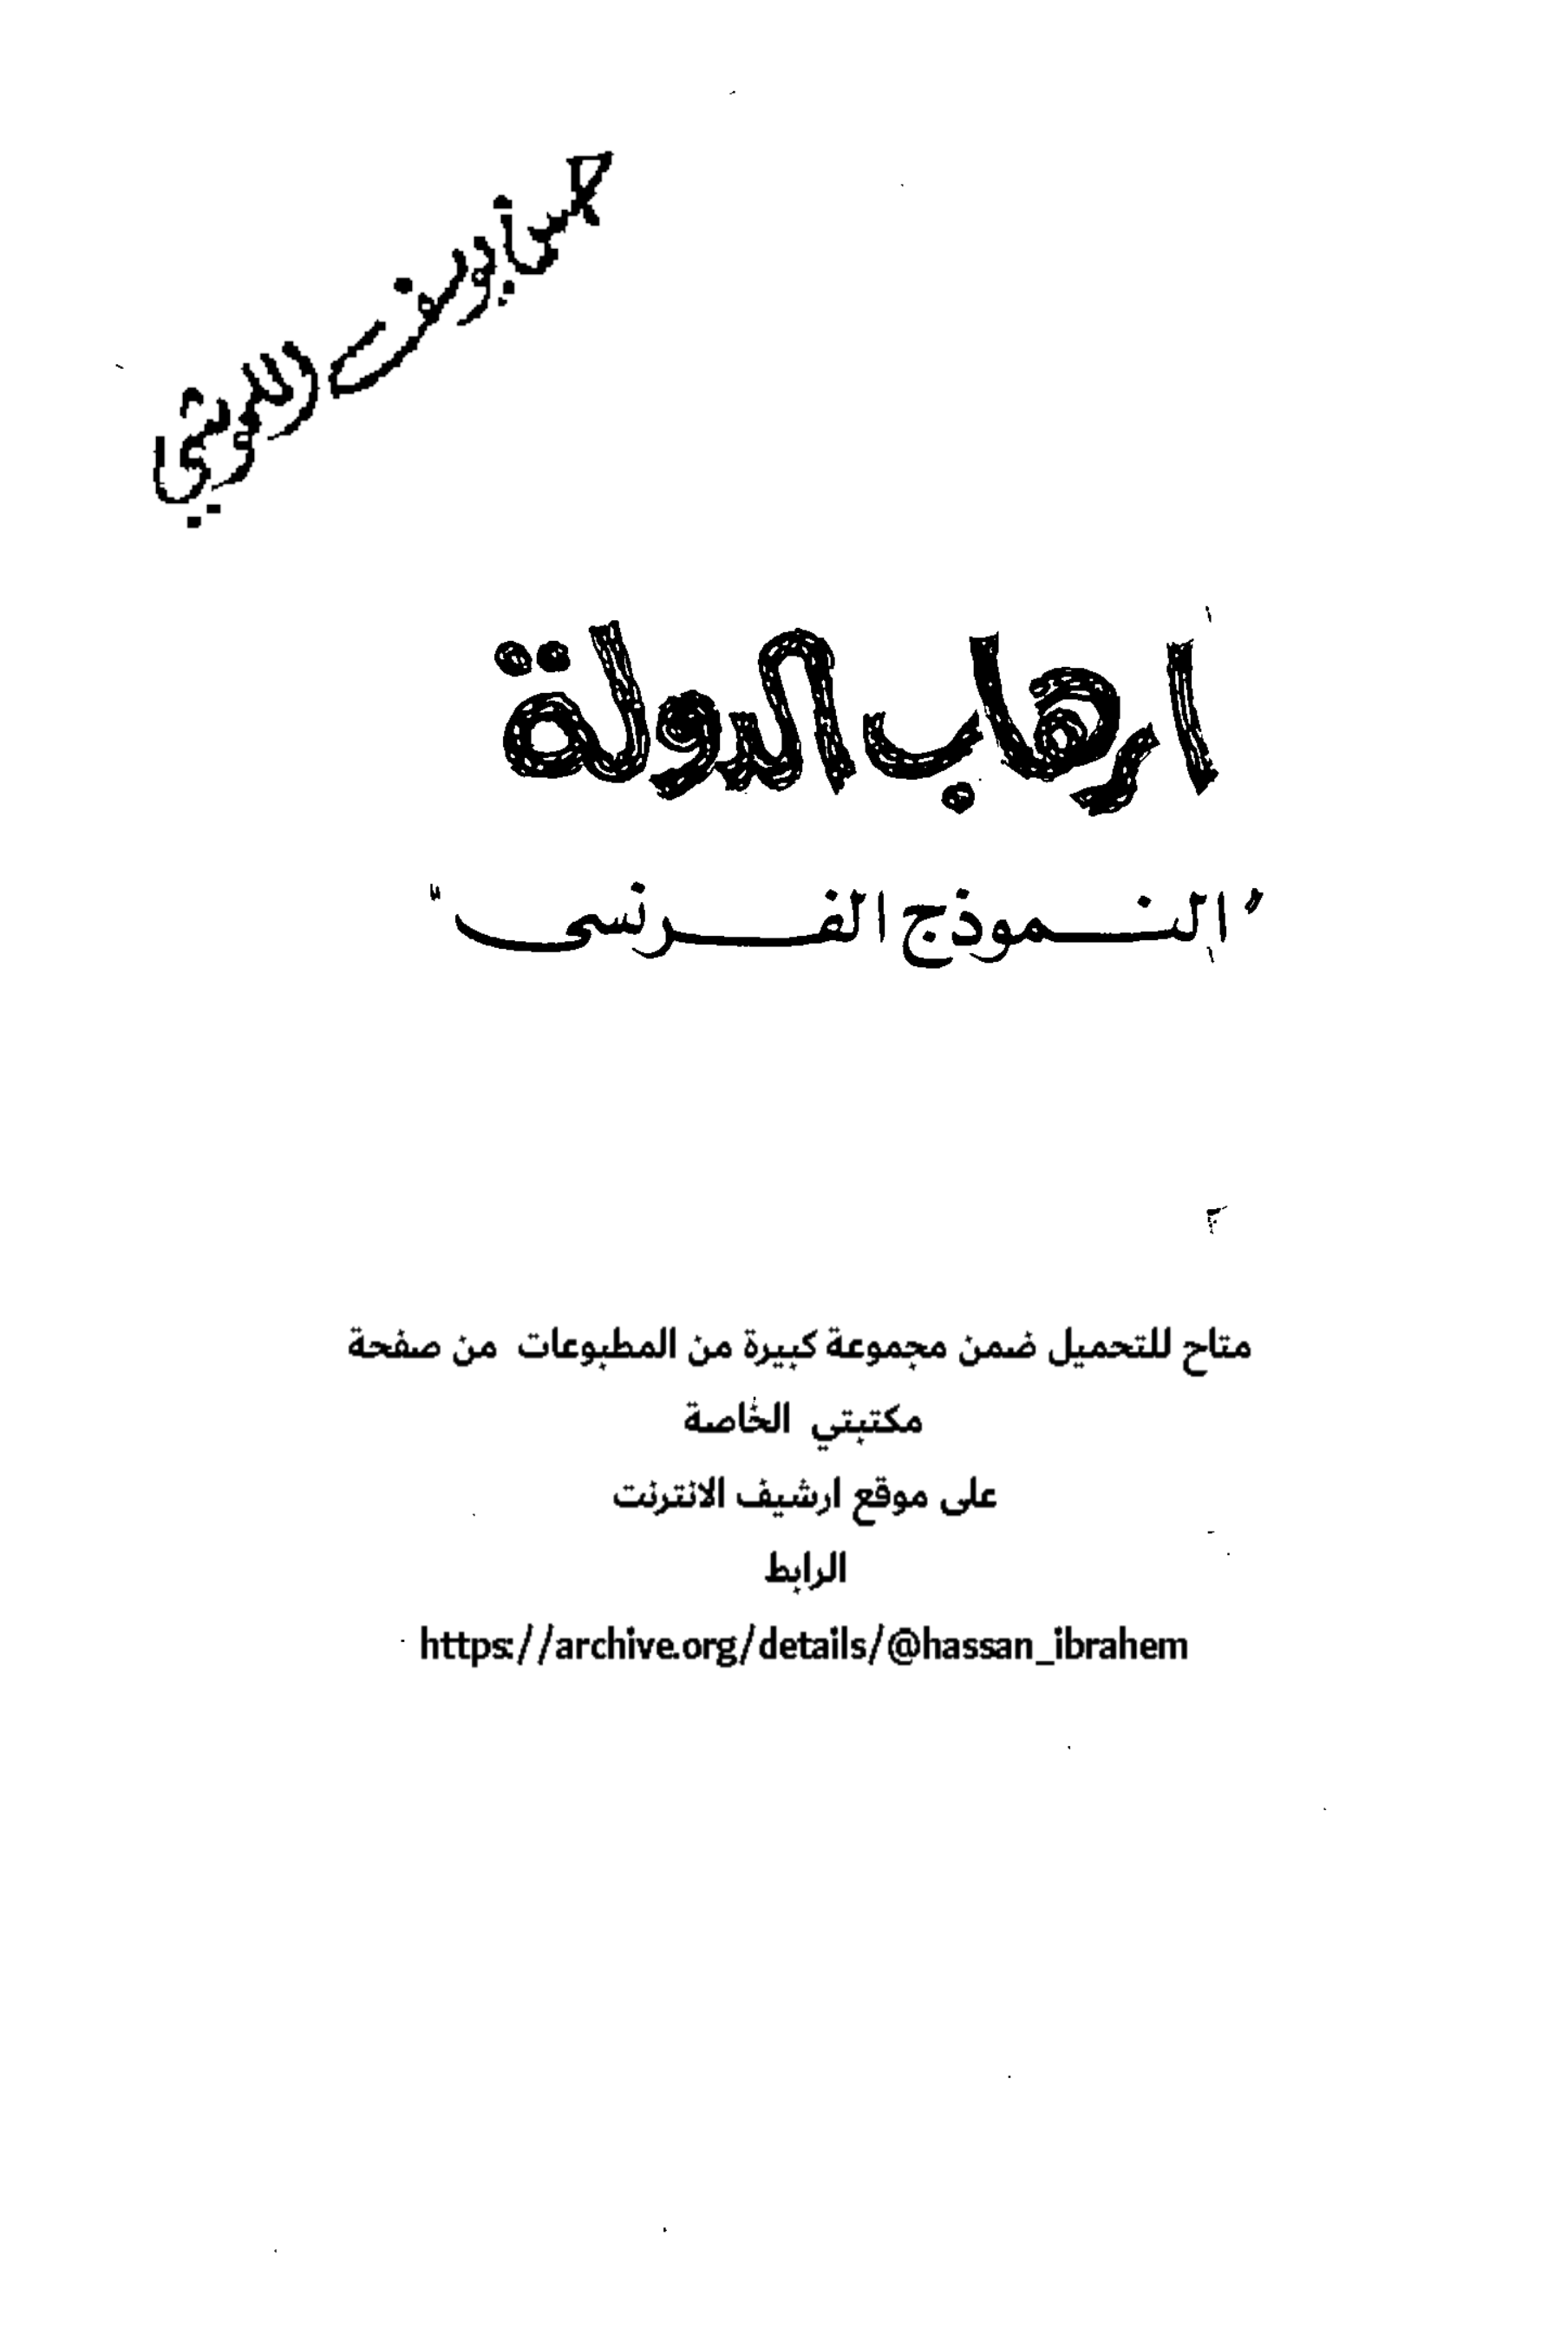 يوسف اللوثي
ارهاب الدولة
"النموذج الفرنسى"
متاح للتحميل ضمن مجموعة كبيرة من المطبوعات من صفحة
مكتبتي الخاصة
على موقع ارشيف الانترنت
الرابط
https://archive.org/details/@hassan_ibrahem